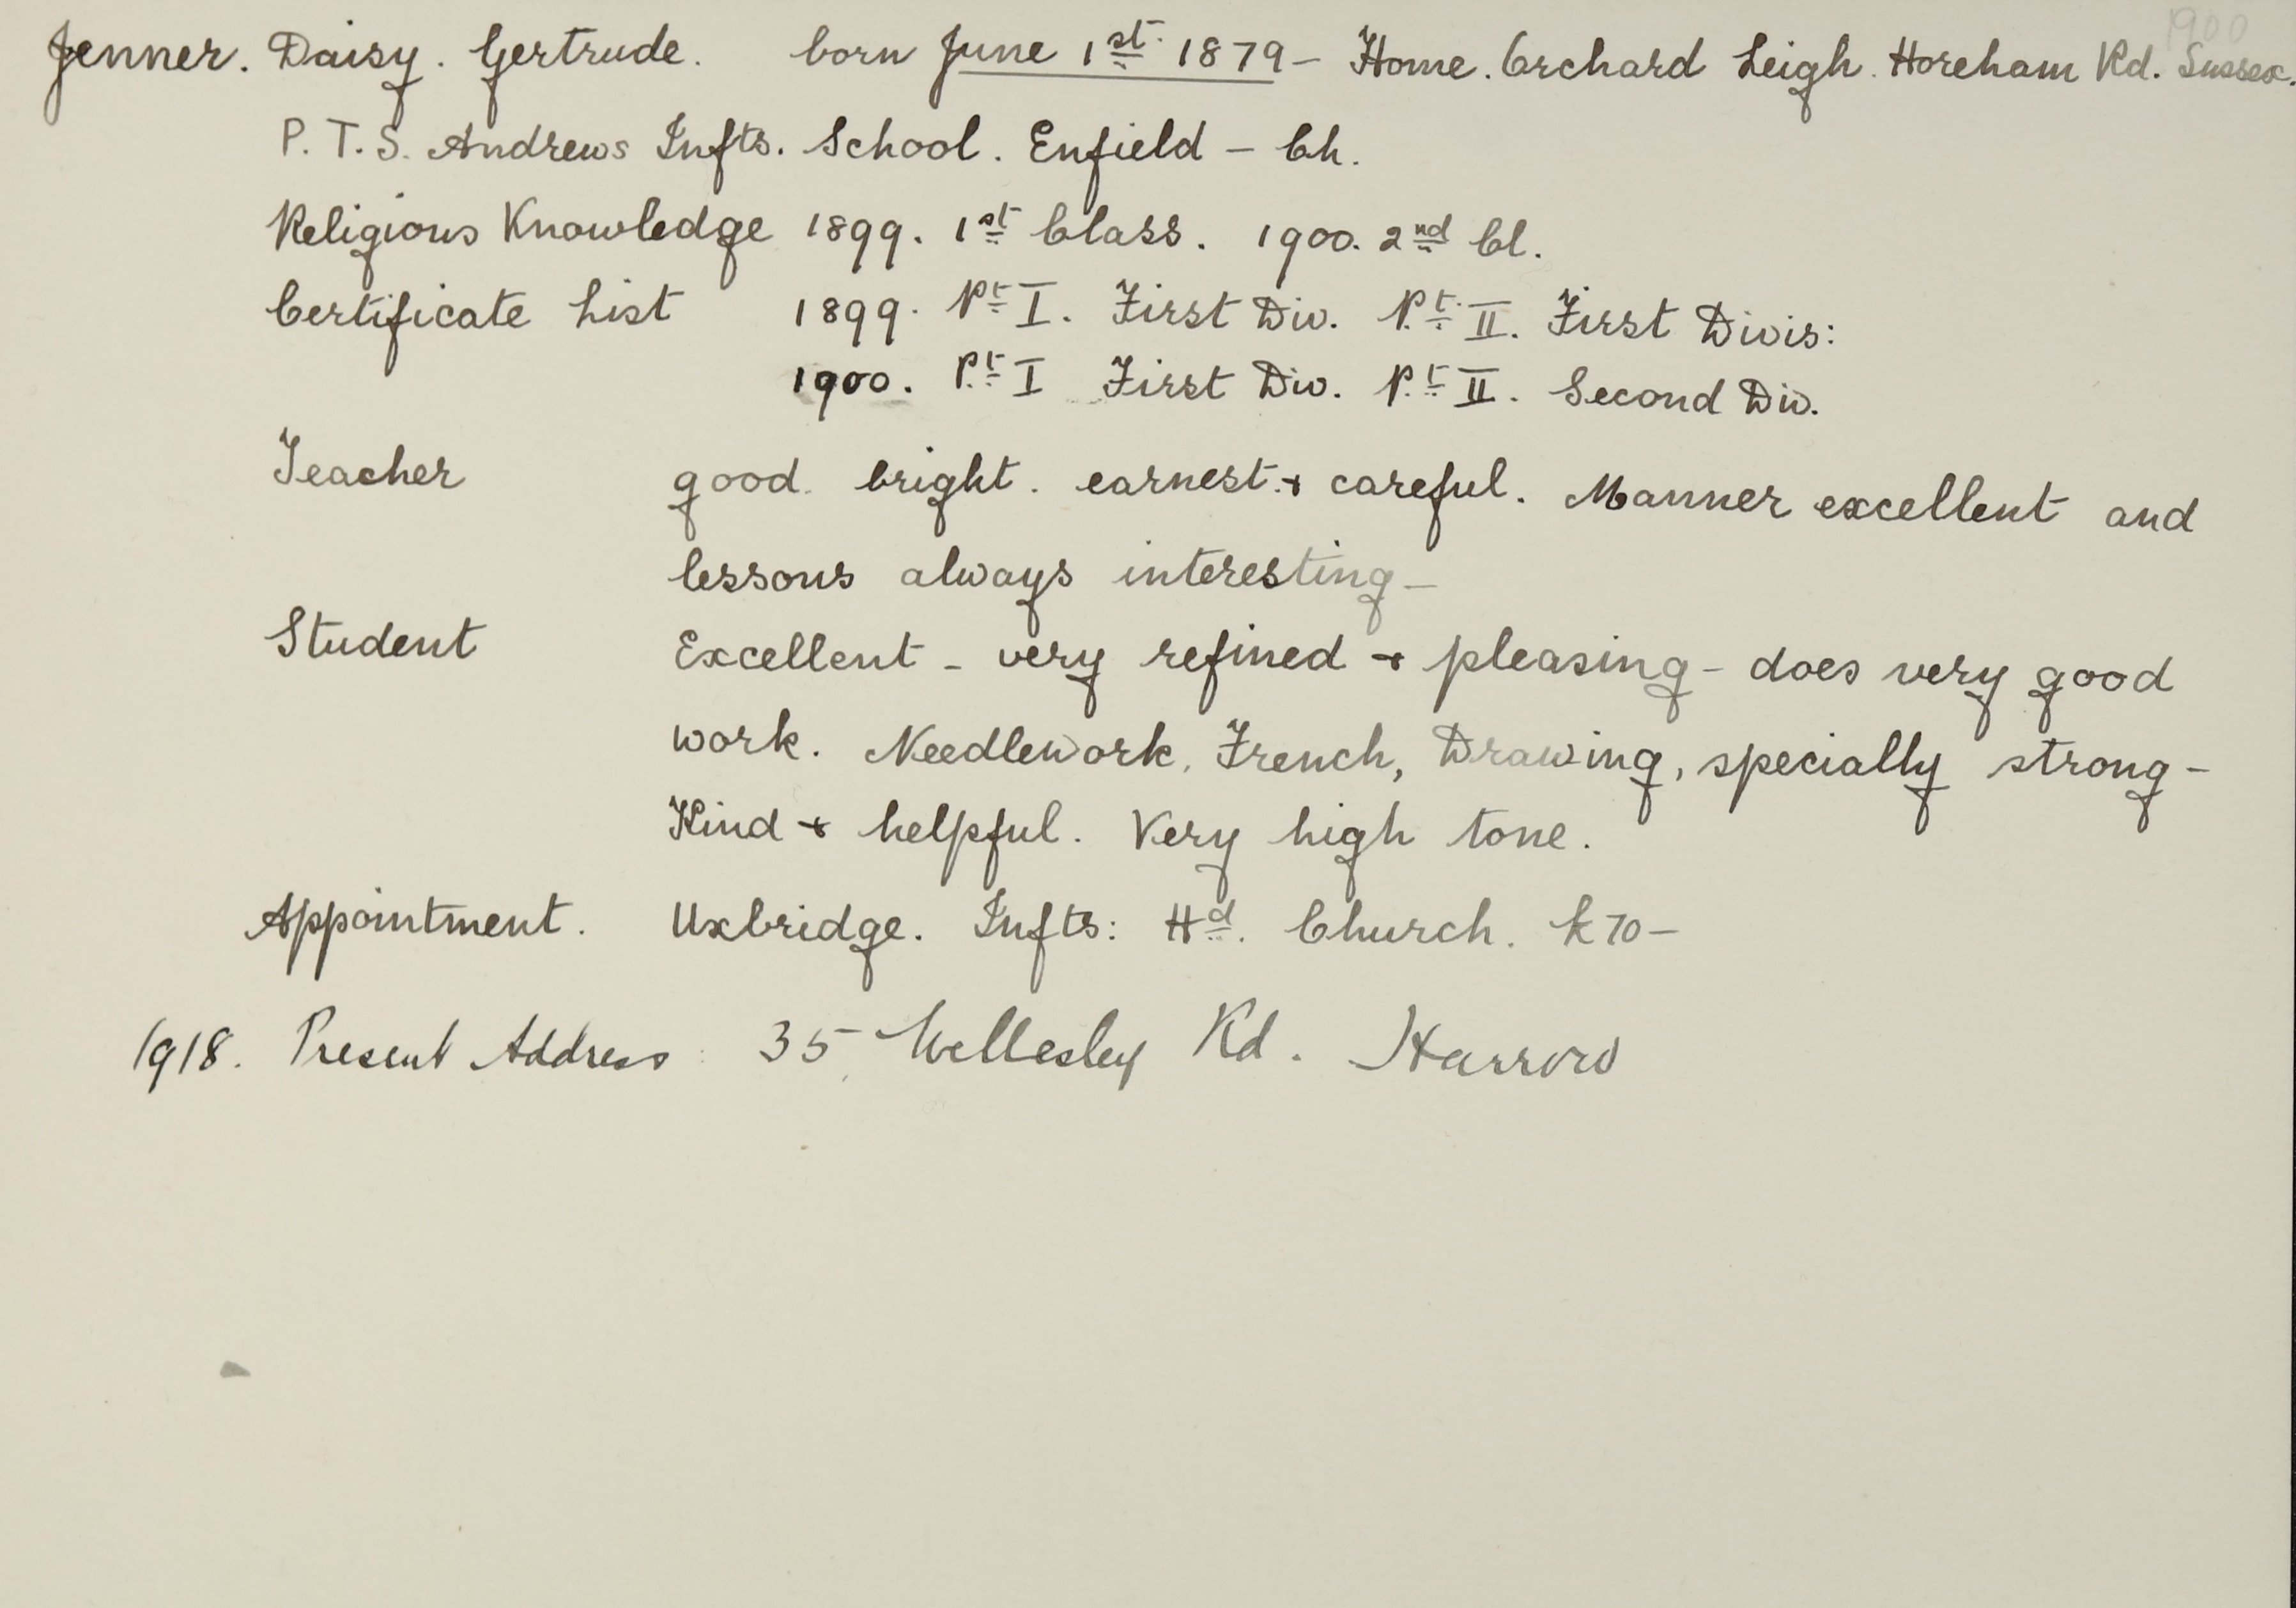 1900
Jenner. Daisy. Gertrude. born June 1st 1879 – Home. Orchard Leigh. Horeham Rd. Sussex.
P. T. S. Andrews Infts. School. Enfield – Ch.
Religious Knowledge 1899. 1st Class. 1900. 2nd Cl.
Certificate List 1899. Pt I. First Div. Pt II. First Divis:
1900. Pt I First Div. Pt II. Second Div.
Teacher good. bright. earnest. + careful. Manner excellent and
lessons always interesting –
Student Excellent – very refined + pleasing – does very good
work. Needlework, French, Drawing, specially strong –
Kind + helpful. Very high tone.
Appointment. Uxbridge. Infts: Hd. Church. £70 –
1918. Present Address: 35 Wellesley Rd. Harrow